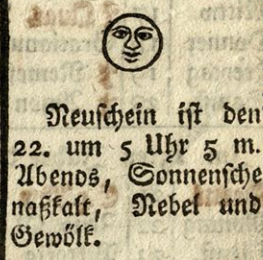 Neuschein ist den
22. um 5 Uhr 5 m.
Abends, Sonnensche
naßkalt, Nebel und
Gewölk.